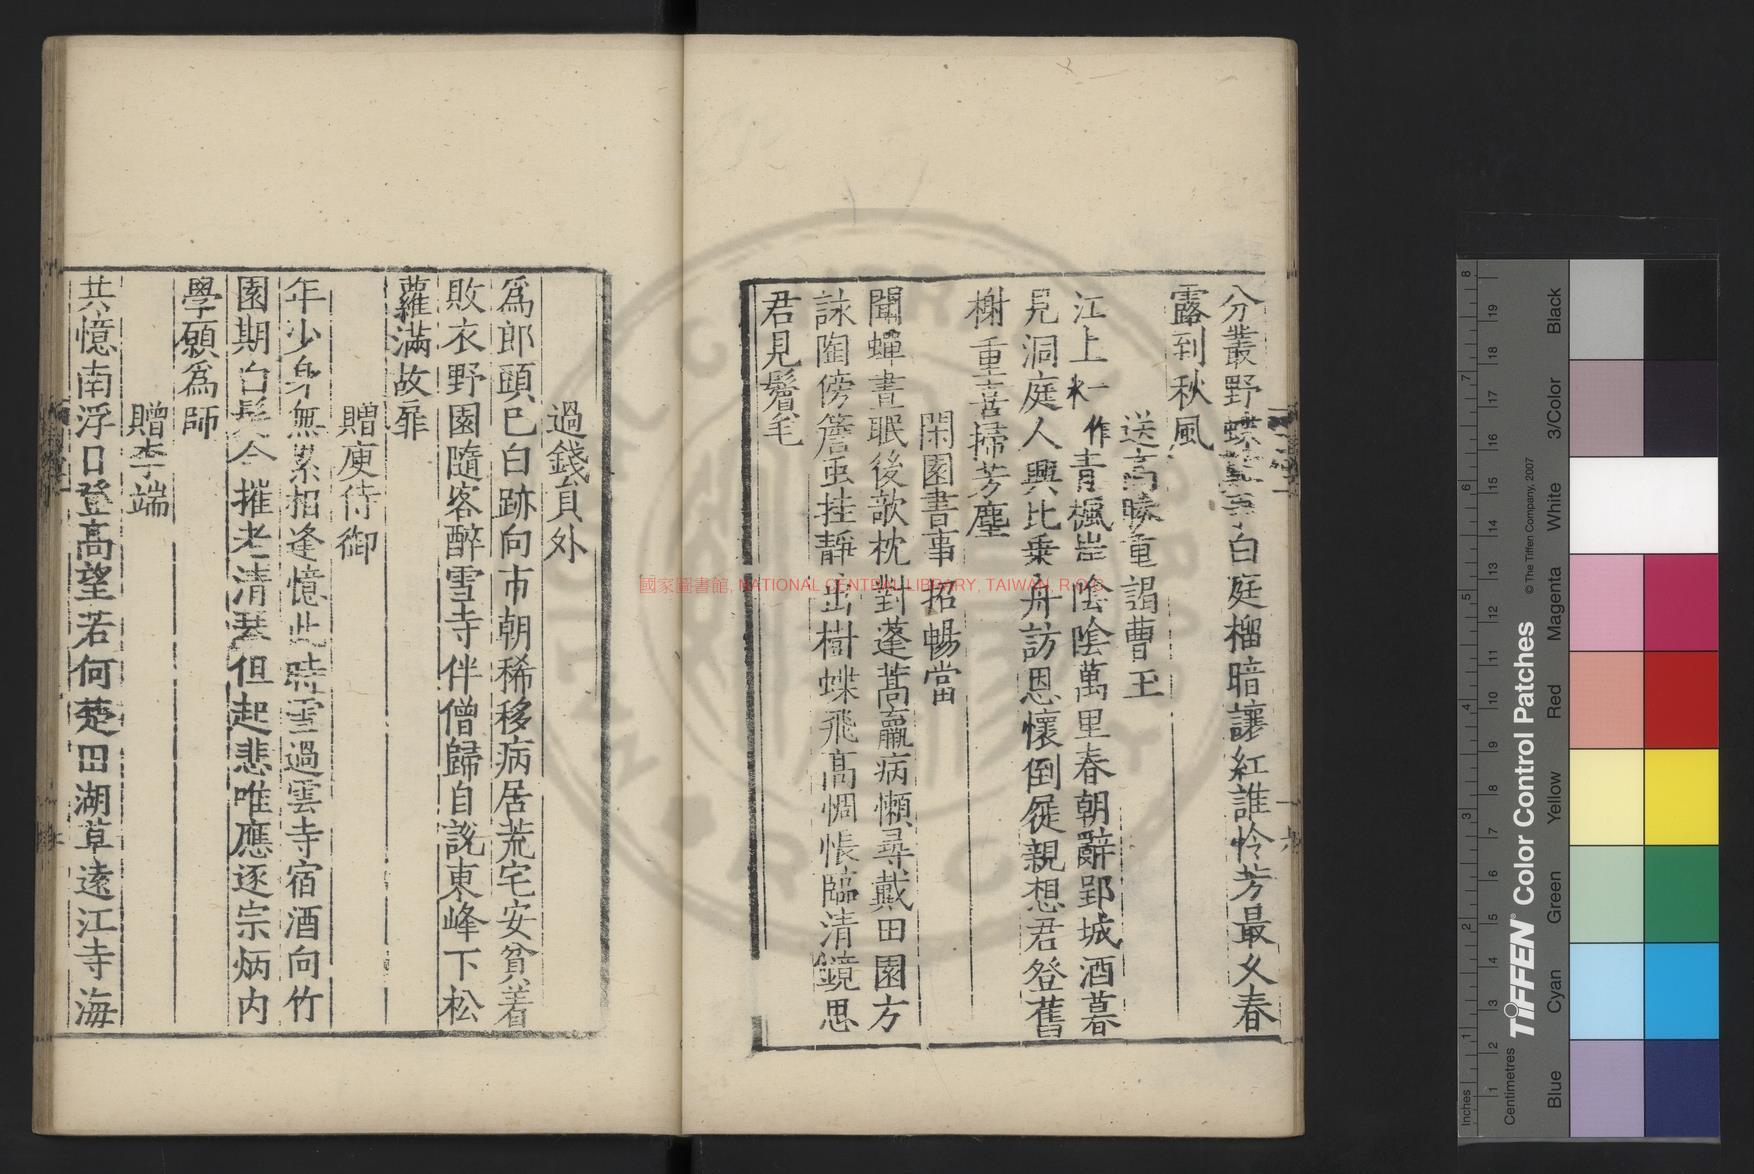 分叢野蝶 白庭榴暗讓紅誰怜芳最久春
露到秋風
送高勝重謁曹王
江上一作水青楓岸陰陰萬里春朝辭郢城酒暮
見洞庭人興比乗舟訪恩懷倒屣親想君登舊
榭重喜掃芳塵
閑園書事招暢當
聞蟬晝眠後欹枕對蓬蒿羸病懶尋戴田園方
詠陶傍簷虫挂靜出樹蝶飛高惆悵臨清鏡思
君見鬢毛
過錢員外
爲郎頭已白跡向市朝稀移病居荒宅安貧着
敗衣野園隨客醉雪寺伴僧歸自說東峰下松
蘿滿故扉
贈庾侍御
年少身無累相逢憶此時雪過雲寺宿酒向竹
園期白髮今摧老清琴但起悲唯應逐宗炳内
學願爲師
贈李端
共憶南浮日登高望若何楚田湖草遠江寺海
國家圖書館, NATIONAL CENTRAL LIBRARY, TAIWAN, R.O.C
Centimetres
Inches
TIFFEN® Color Control Patches
© The Tiffen Company, 2007
Blue
Cyan
Green
Yellow
Red
Magenta
White
3/Color
Black